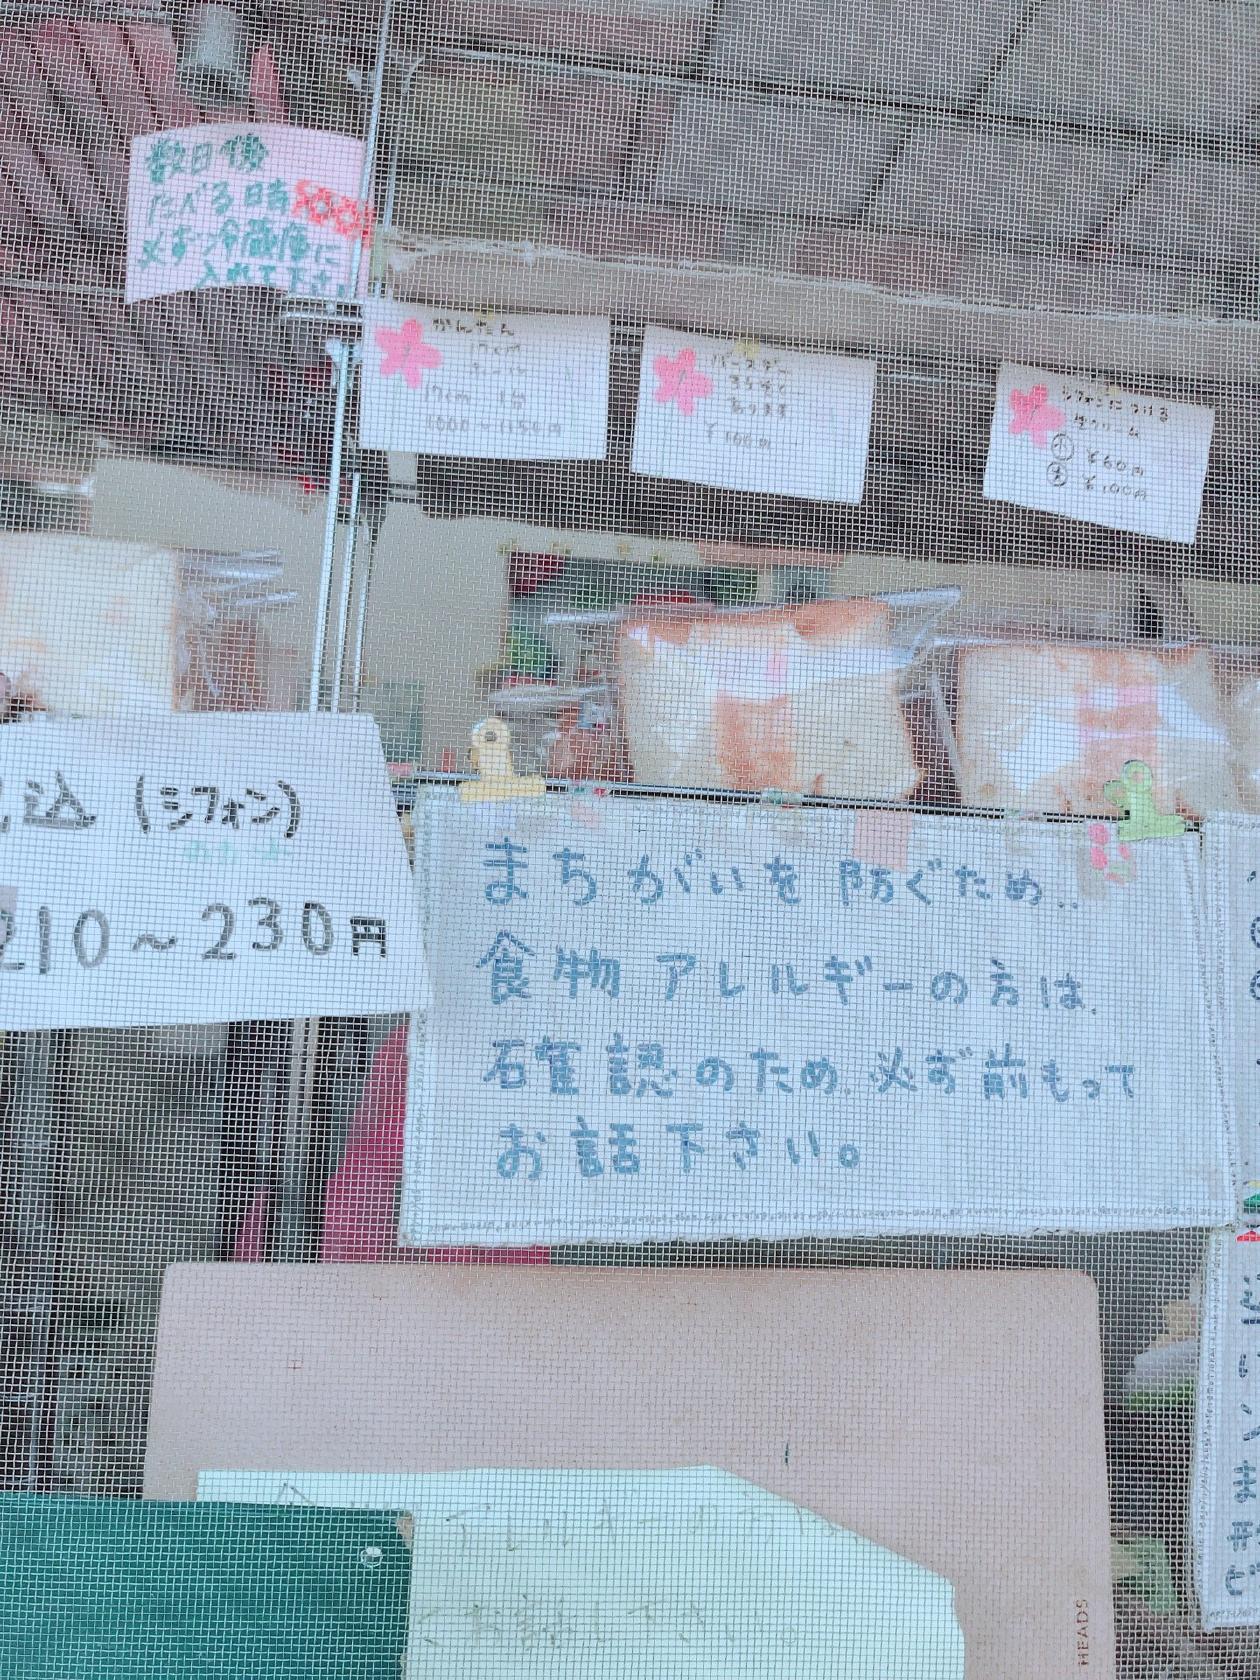 数日後
たべる時
必ず冷蔵庫に
入れて下さい
かんたん
17cm
17cm 1台
1000~1150円
バースデー
ろうそく
あります
¥100円
シフォンにつける
生クリーム
小 ¥60円
大 ¥100円
込 (シフォン)
210~230円
まちがいを防ぐため..
食物アレルギーの方は、
確認のため、必ず前もって
お話下さい。
アレルギーの方は
てお話し下さい
HEADS